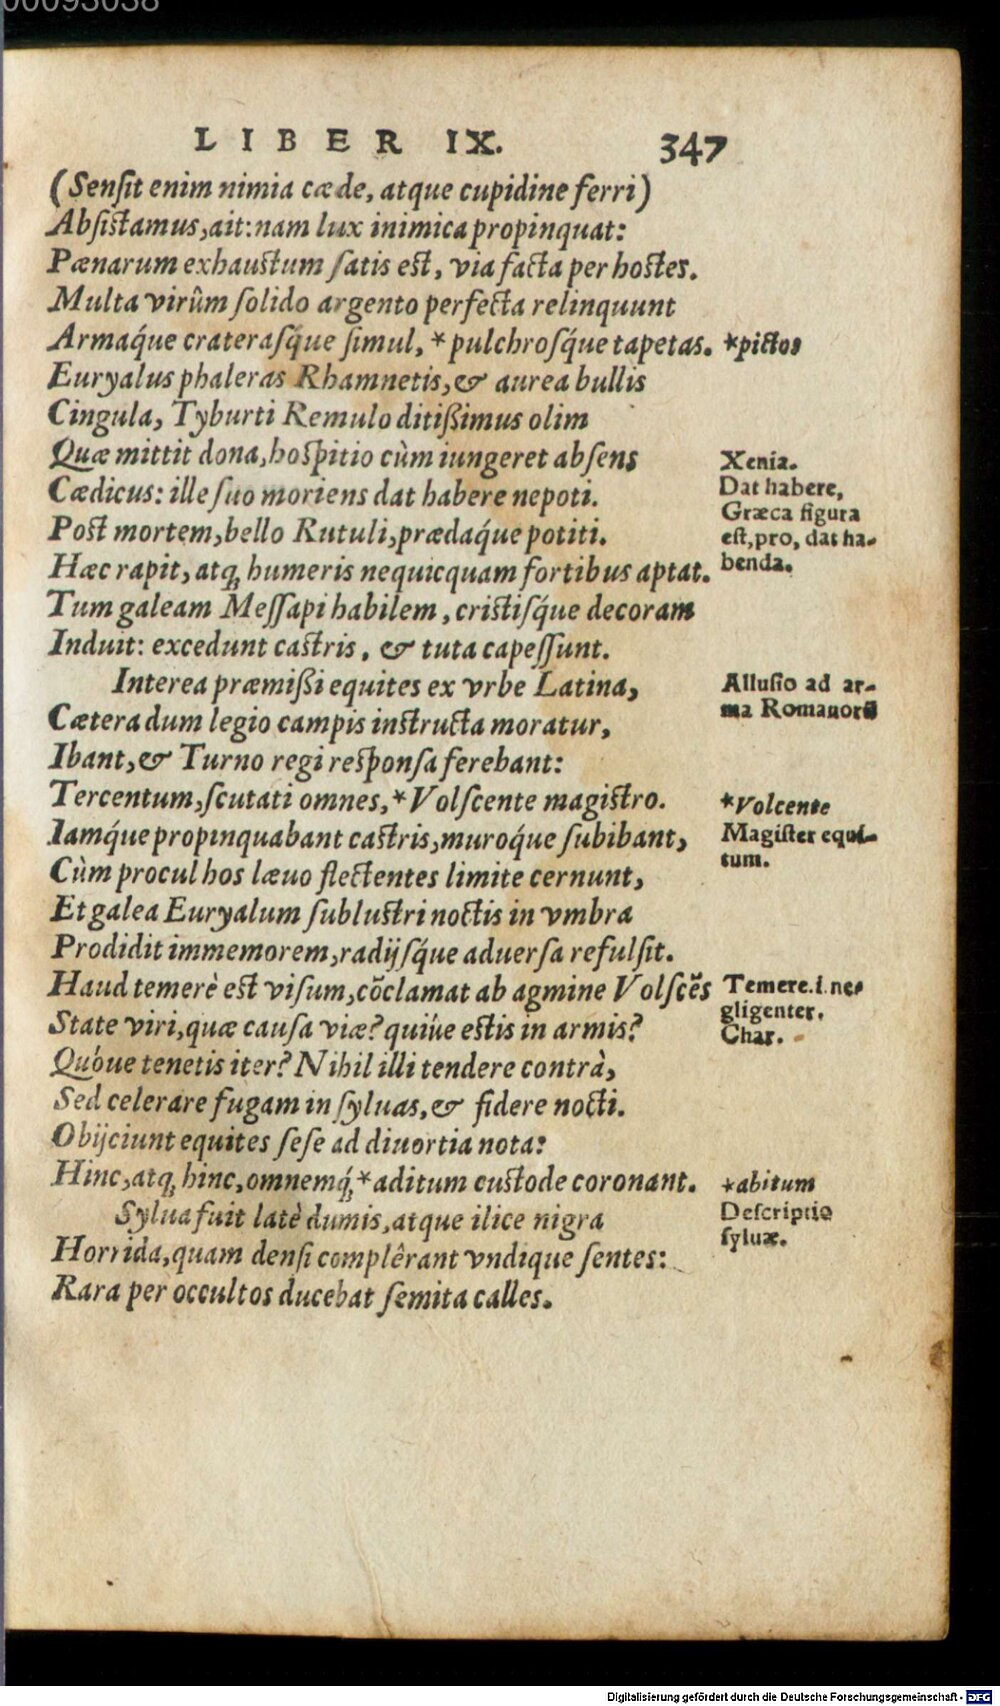 00093038
LIBER IX. 347
(Senſit enim nimia cæde, atque cupidine ferri)
Abſiſtamus, ait: nam lux inimica propinquat:
Pœnarum exhauſtum ſatis eſt, via facta per hoſtes.
Multa virûm ſolido argento perfecta relinquunt
Armaq́ue crateraſq́ue ſimul, *pulchroſq́ue tapetas. *pictos
Euryalus phaleras Rhamnetis, & aurea bullis
Cingula, Tyburti Remulo ditißimus olim
Quæ mittit dona, hoſpitio cùm iungeret abſens
Cædicus: ille ſuo moriens dat habere nepoti.
Poſt mortem, bello Rutuli, prædaq́ue potiti.
Hæc rapit, atq; humeris nequicquam fortibus aptat.
Tum galeam Meſſapi habilem, criſtiſq́ue decoram
Induit: excedunt caſtris, & tuta capeſſunt.
Interea præmißi equites ex vrbe Latina,
Cætera dum legio campis inſtructa moratur,
Ibant, & Turno regi reſponſa ferebant:
Tercentum, ſcutati omnes, *Volſcente magiſtro.
Iamq́ue propinquabant caſtris, muroq́ue ſubibant,
Cùm procul hos læuo flectentes limite cernunt,
Et galea Euryalum ſubluſtri noctis in vmbra
Prodidit immemorem, radijſq́ue aduerſa refulſit.
Haud temerè eſt viſum, cōclamat ab agmine Volſcēs
State viri, quæ cauſa viæ? quiúe eſtis in armis?
Quóue tenetis iter? Nihil illi tendere contrà,
Sed celerare fugam in ſyluas, & fidere nocti.
Obijciunt equites ſeſe ad diuortia nota:
Hinc, atq; hinc, omnemq́; *aditum cuſtode coronant.
Sylua fuit latè dumis, atque ilice nigra
Horrida, quam denſi complêrant vndique ſentes:
Rara per occultos ducebat ſemita calles.
Xenia.
Dat habere,
Græca figura
eſt, pro, dat ha-
benda.
Alluſio ad ar-
ma Romanorū
*Volcente
Magiſter equi-
tum.
Temere.i.ne-
gligenter.
Char.
*abitum
Deſcriptio
ſyluæ.
Digitalisierung gefördert durch die Deutsche Forschungsgemeinschaft - DFG